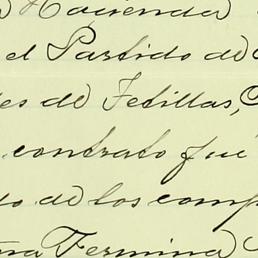 Hacienda
el Partido de
es de Tetillas,
contrato fue
o de los comp
Fermina